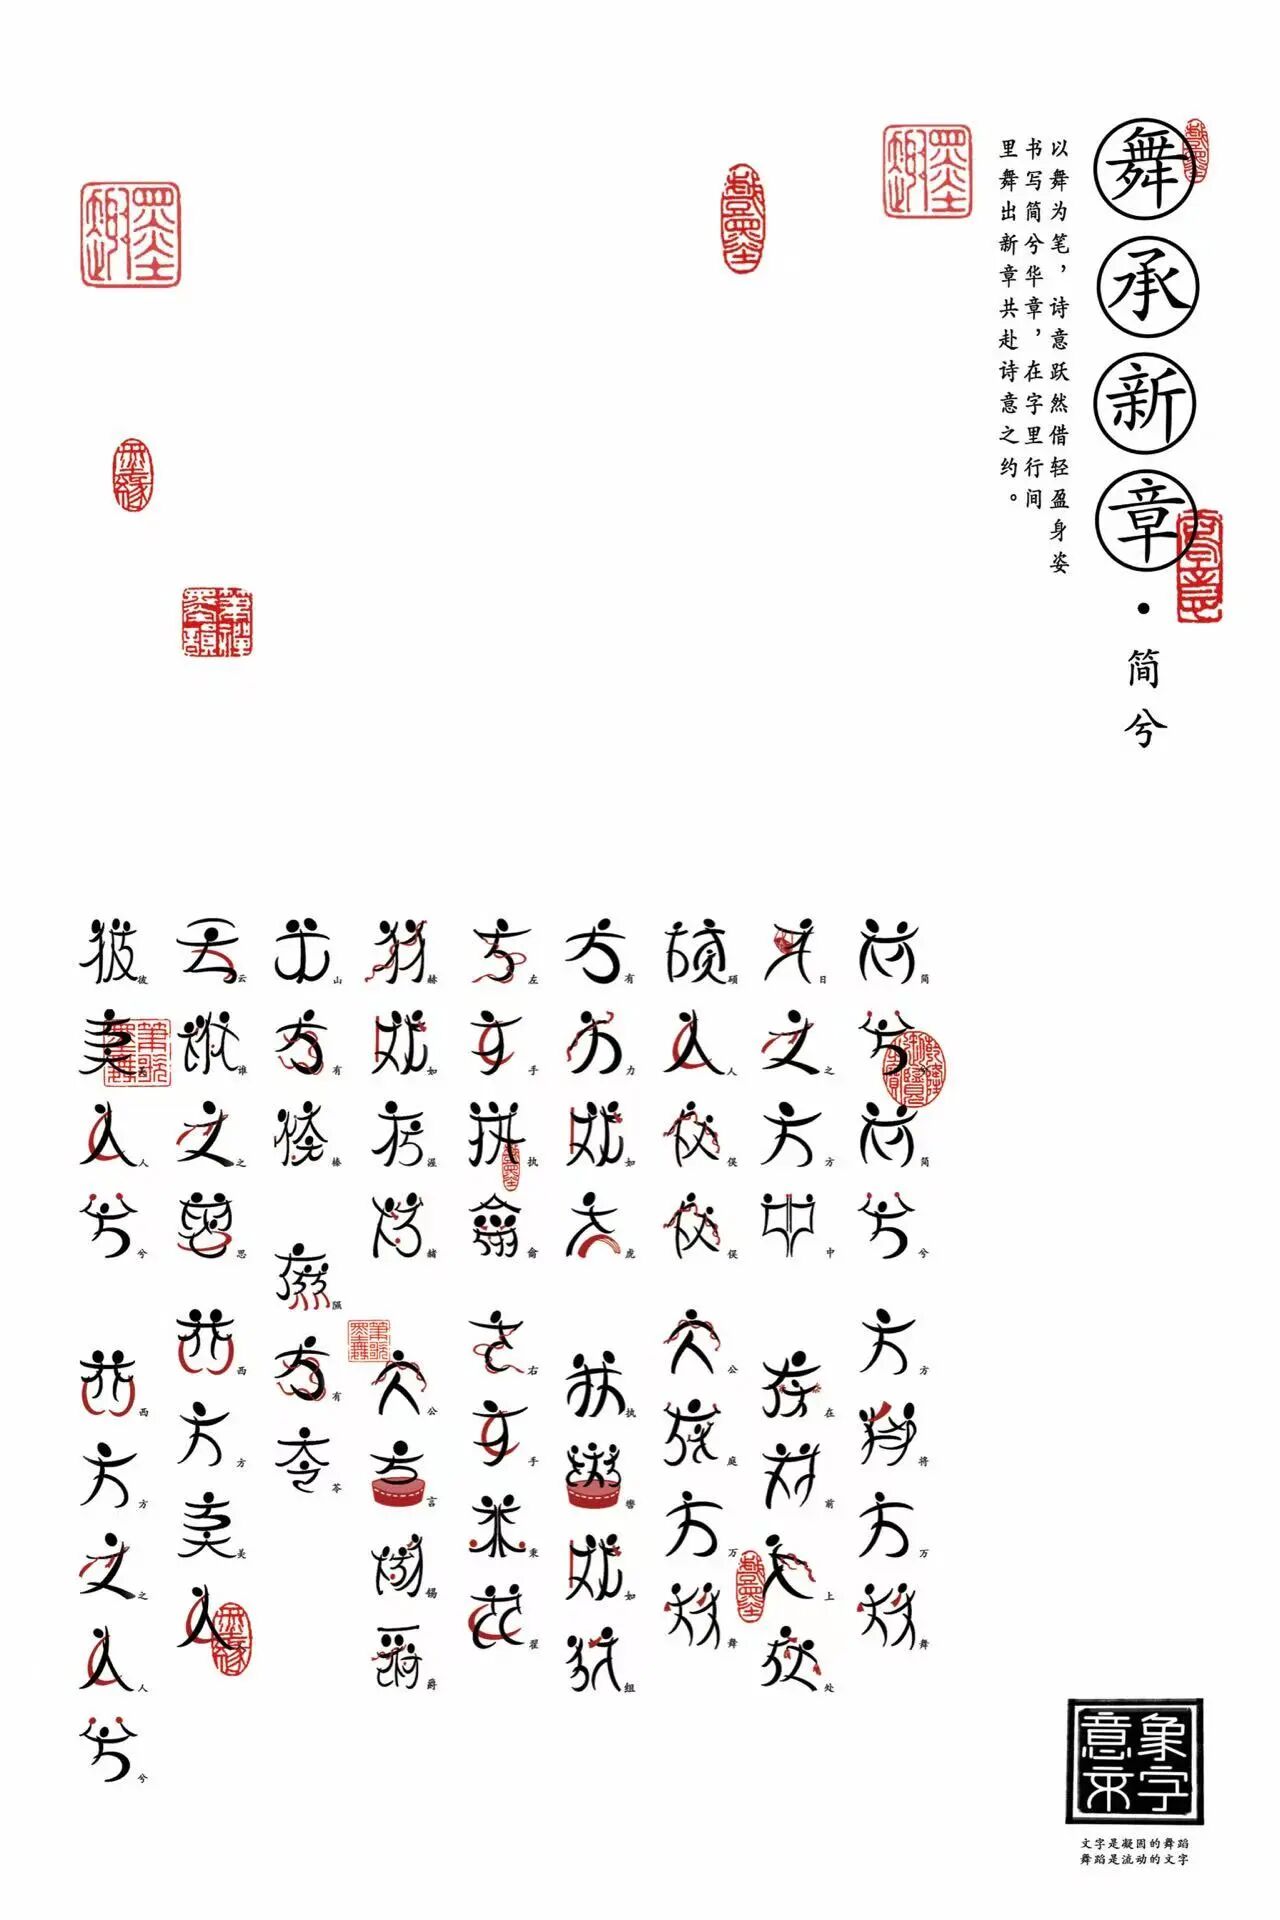 舞承新章·简兮
以舞为笔，诗意跃然借轻盈身姿
书写简兮华章，在字里行间
里舞出新章共赴诗意之约。
简兮简兮 方将万舞
日之方中 在前上处
硕人俣俣 公庭万舞
有力如虎 执辔如组
左手执龠 右手秉翟
赫如渥赭 公言锡爵
山有榛 隰有苓
云谁之思 西方美人
彼美人兮 西方之人兮
文字是凝固的舞蹈
舞蹈是流动的文字